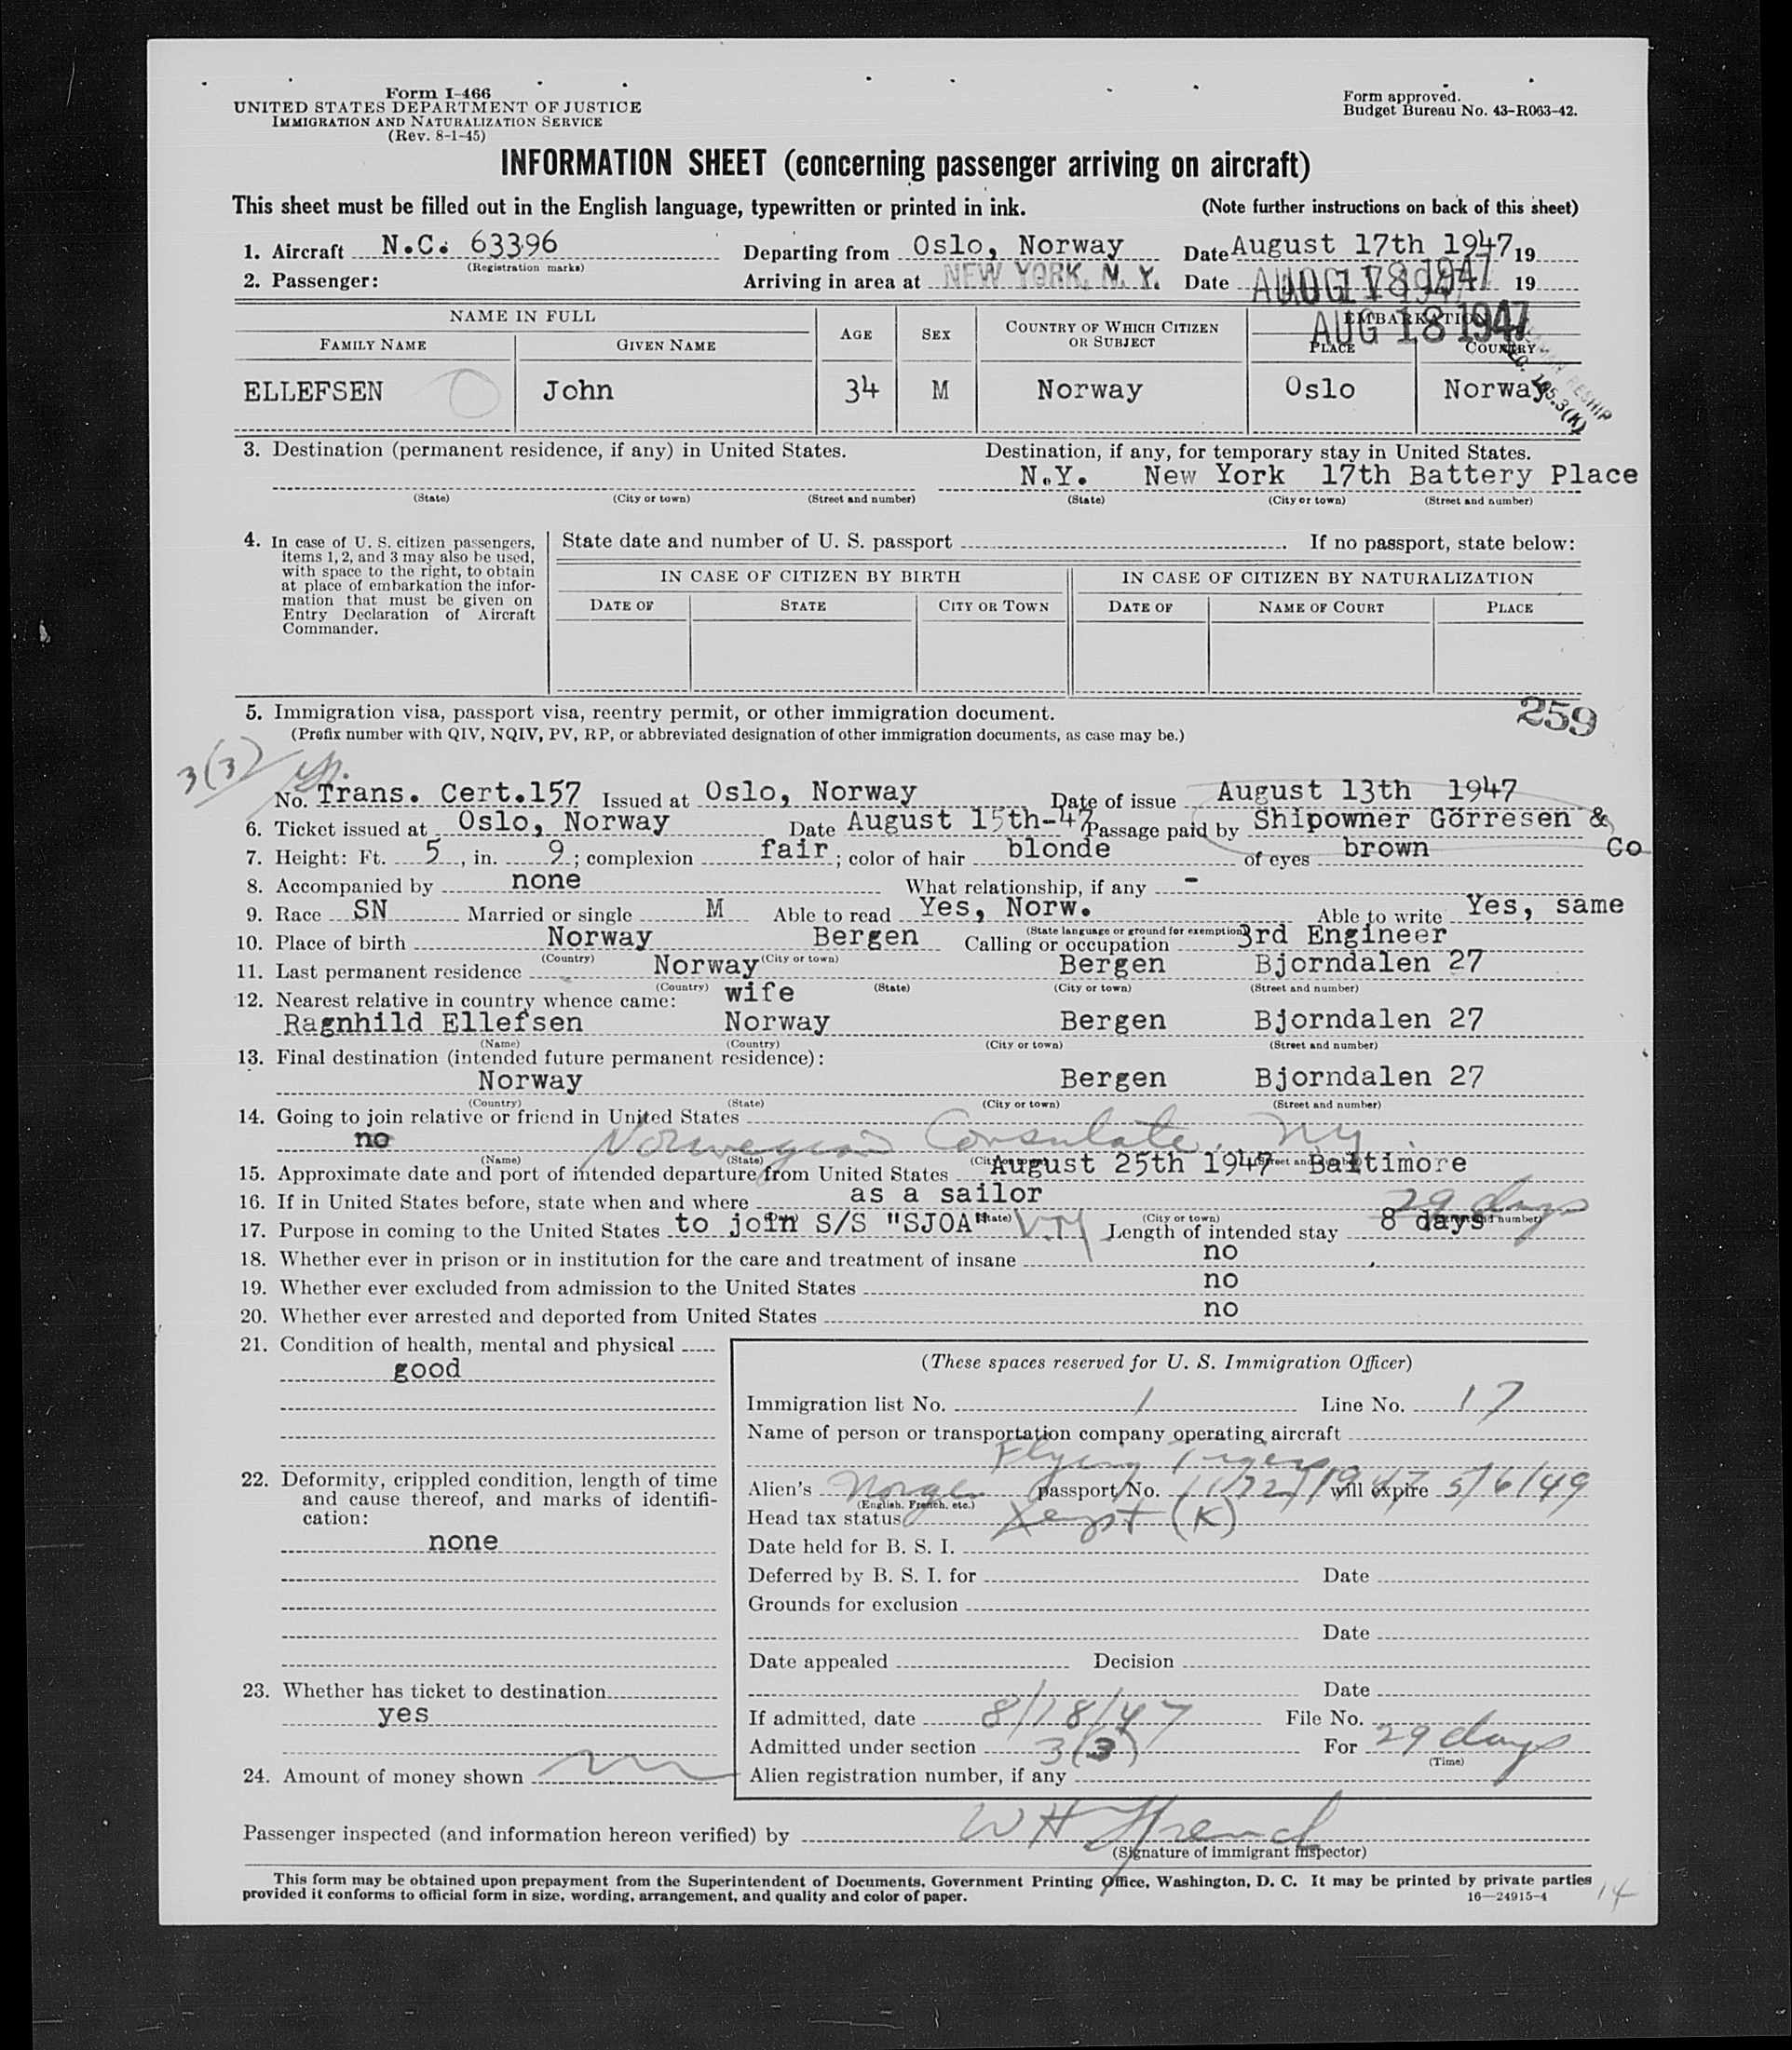 Form I-466
UNITED STATES DEPARTMENT OF JUSTICE
IMMIGRATION AND NATURALIZATION SERVICE
(Rev. 8-1-45)
Form approved.
Budget Bureau No. 43-R063-42.
INFORMATION SHEET (concerning passenger arriving on aircraft)
This sheet must be filled out in the English language, typewritten or printed in ink. (Note further instructions on back of this sheet)
1. Aircraft N.C. 63396 Departing from Oslo, Norway Date August 17th 1947 19
(Registration marks)
2. Passenger: Arriving in area at NEW YORK, N. Y. Date AUG 18 1947 19
AUG 18 1947
NAME IN FULL AGE SEX COUNTRY OF WHICH CITIZEN OR SUBJECT EMBARKATION
FAMILY NAME GIVEN NAME PLACE COUNTRY
ELLEFSEN John 34 M Norway Oslo Norway
3. Destination (permanent residence, if any) in United States. Destination, if any, for temporary stay in United States.
N.Y. New York 17th Battery Place
(State) (City or town) (Street and number) (State) (City or town) (Street and number)
4. In case of U. S. citizen passengers, items 1, 2, and 3 may also be used, with space to the right, to obtain at place of embarkation the information that must be given on Entry Declaration of Aircraft Commander.
State date and number of U. S. passport . If no passport, state below:
IN CASE OF CITIZEN BY BIRTH IN CASE OF CITIZEN BY NATURALIZATION
DATE OF STATE CITY OR TOWN DATE OF NAME OF COURT PLACE
259
5. Immigration visa, passport visa, reentry permit, or other immigration document.
(Prefix number with QIV, NQIV, PV, RP, or abbreviated designation of other immigration documents, as case may be.)
3(3)
No. Trans. Cert.157 Issued at Oslo, Norway Date of issue August 13th 1947
6. Ticket issued at Oslo, Norway Date August 15th-47 Passage paid by Shipowner Görresen & Co
7. Height: Ft. 5, in. 9; complexion fair; color of hair blonde of eyes brown
8. Accompanied by none What relationship, if any -
9. Race SN Married or single M Able to read Yes, Norw. Able to write Yes, same
(State language or ground for exemption)
10. Place of birth Norway Bergen Calling or occupation 3rd Engineer
(Country) (City or town)
11. Last permanent residence Norway Bergen Bjorndalen 27
(Country) (State) (City or town) (Street and number)
12. Nearest relative in country whence came: wife
Ragnhild Ellefsen Norway Bergen Bjorndalen 27
(Name) (Country) (City or town) (Street and number)
13. Final destination (intended future permanent residence):
Norway Bergen Bjorndalen 27
(Country) (State) (City or town) (Street and number)
14. Going to join relative or friend in United States
no Norwegian Consulate, NY
(Name) (State) (City or town) (Street and number)
15. Approximate date and port of intended departure from United States August 25th 1947 Baltimore
16. If in United States before, state when and where as a sailor 29 days
(State) (City or town) (Street and number)
17. Purpose in coming to the United States to join S/S "SJOA" Length of intended stay 8 days
18. Whether ever in prison or in institution for the care and treatment of insane no
19. Whether ever excluded from admission to the United States no
20. Whether ever arrested and deported from United States no
21. Condition of health, mental and physical
good
22. Deformity, crippled condition, length of time and cause thereof, and marks of identification:
none
23. Whether has ticket to destination
yes
24. Amount of money shown
(These spaces reserved for U. S. Immigration Officer)
Immigration list No. 1 Line No. 17
Name of person or transportation company operating aircraft
Flying Tigers
Alien's Norge passport No. will expire 5/6/49
(English, French, etc.)
Head tax status (K)
Date held for B. S. I.
Deferred by B. S. I. for Date
Grounds for exclusion
Date
Date appealed Decision
Date
If admitted, date 8/18/47 File No.
Admitted under section 3(3) For 29 days
(Time)
Alien registration number, if any
Passenger inspected (and information hereon verified) by W H French
(Signature of immigrant inspector)
This form may be obtained upon prepayment from the Superintendent of Documents, Government Printing Office, Washington, D. C. It may be printed by private parties
provided it conforms to official form in size, wording, arrangement, and quality and color of paper. 16—24915-4
14